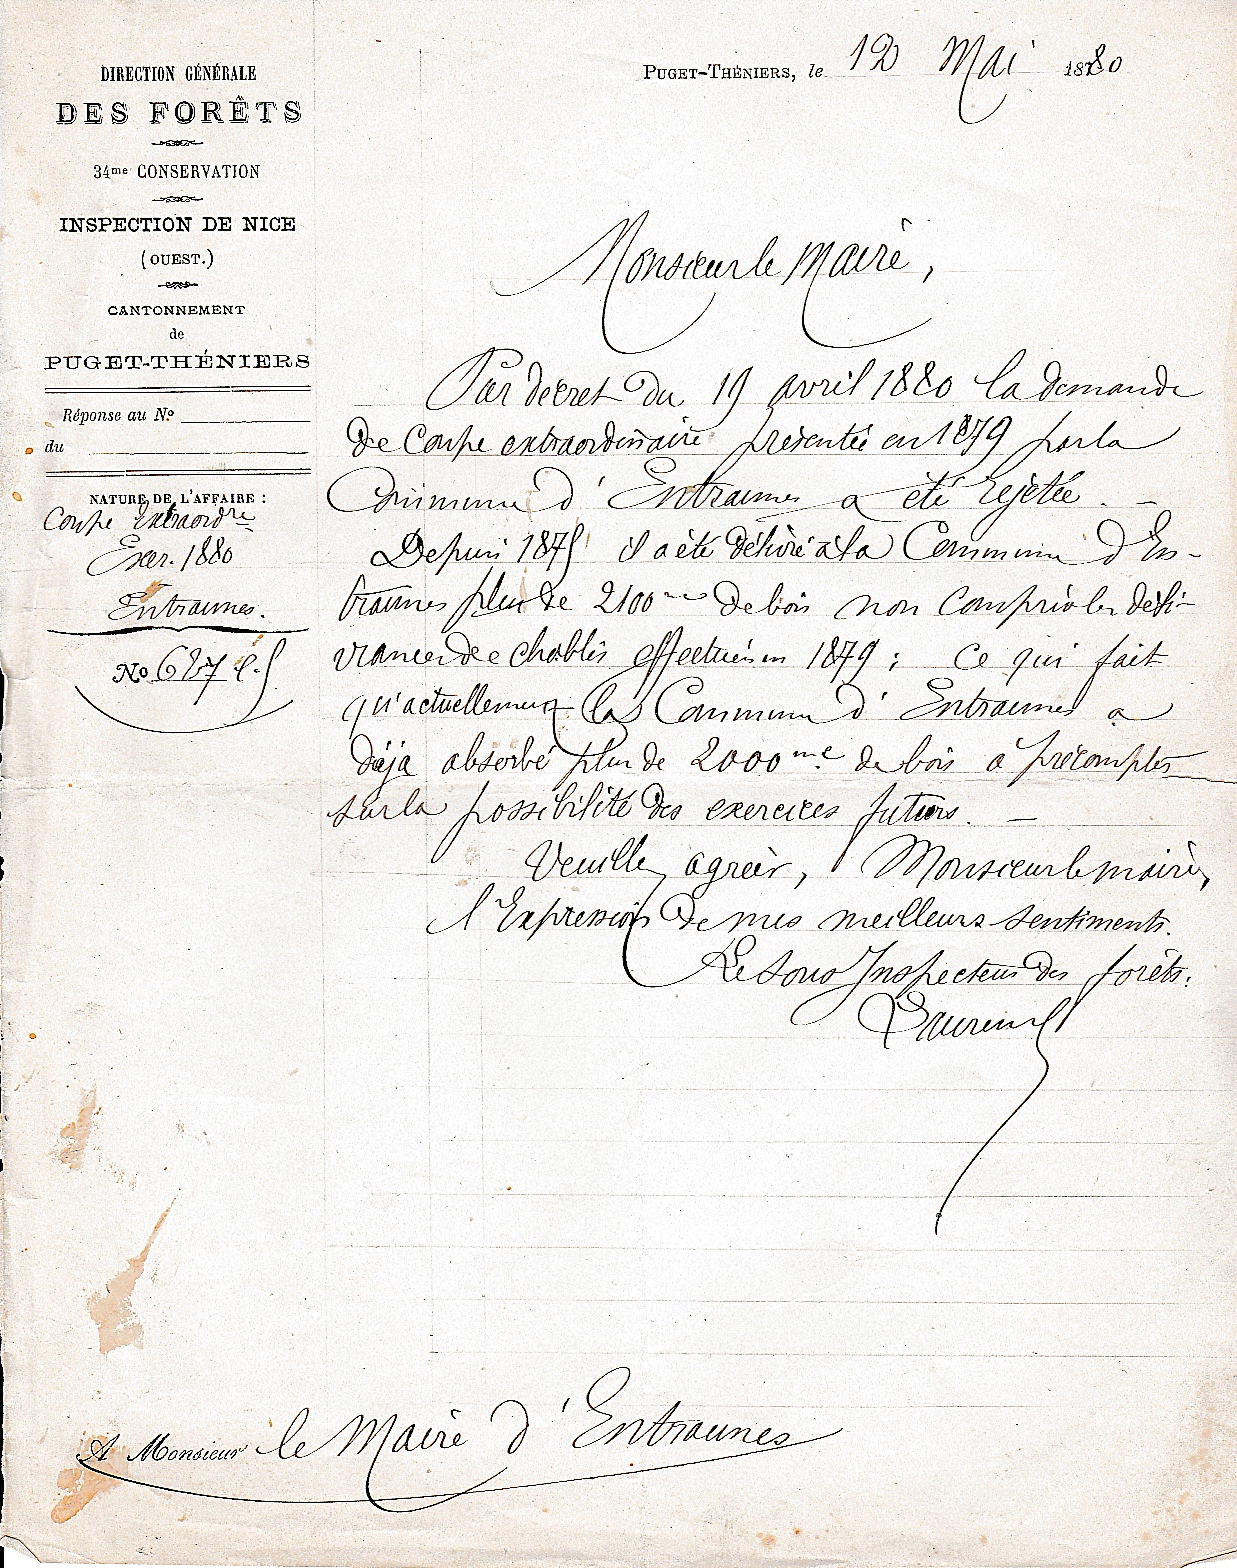 DIRECTION GÉNÉRALE
DES FORÊTS
34me CONSERVATION
INSPECTION DE NICE
(OUEST.)
CANTONNEMENT
de
PUGET-THÉNIERS
Réponse au No
du
NATURE DE L'AFFAIRE :
Coupe Extraordre
Exer. 1880
Entraunes.
No 687
PUGET-THÉNIERS, le 12 Mai 1880
Monsieur le Maire,
Par décret du 19 avril 1880 la demande
de Coupe extraordinaire présentée en 1879 par la
Commune d'Entraunes a été rejetée. —
Depuis 1875 il a été délivré à la Commune d'En-
traunes plus de 2100 mc de bois non compris les déli-
vrances de chablis effectuées en 1879 ; ce qui fait
qu'actuellement la Commune d'Entraunes a
déjà absorbé plus de 2000 mc de bois à précompter
sur la possibilité des exercices futurs. —
Veuillez agréer, Monsieur le maire,
l'Expression de mes meilleurs sentiments.
Le Sous Inspecteur des forêts.
A Monsieur le Maire d'Entraunes